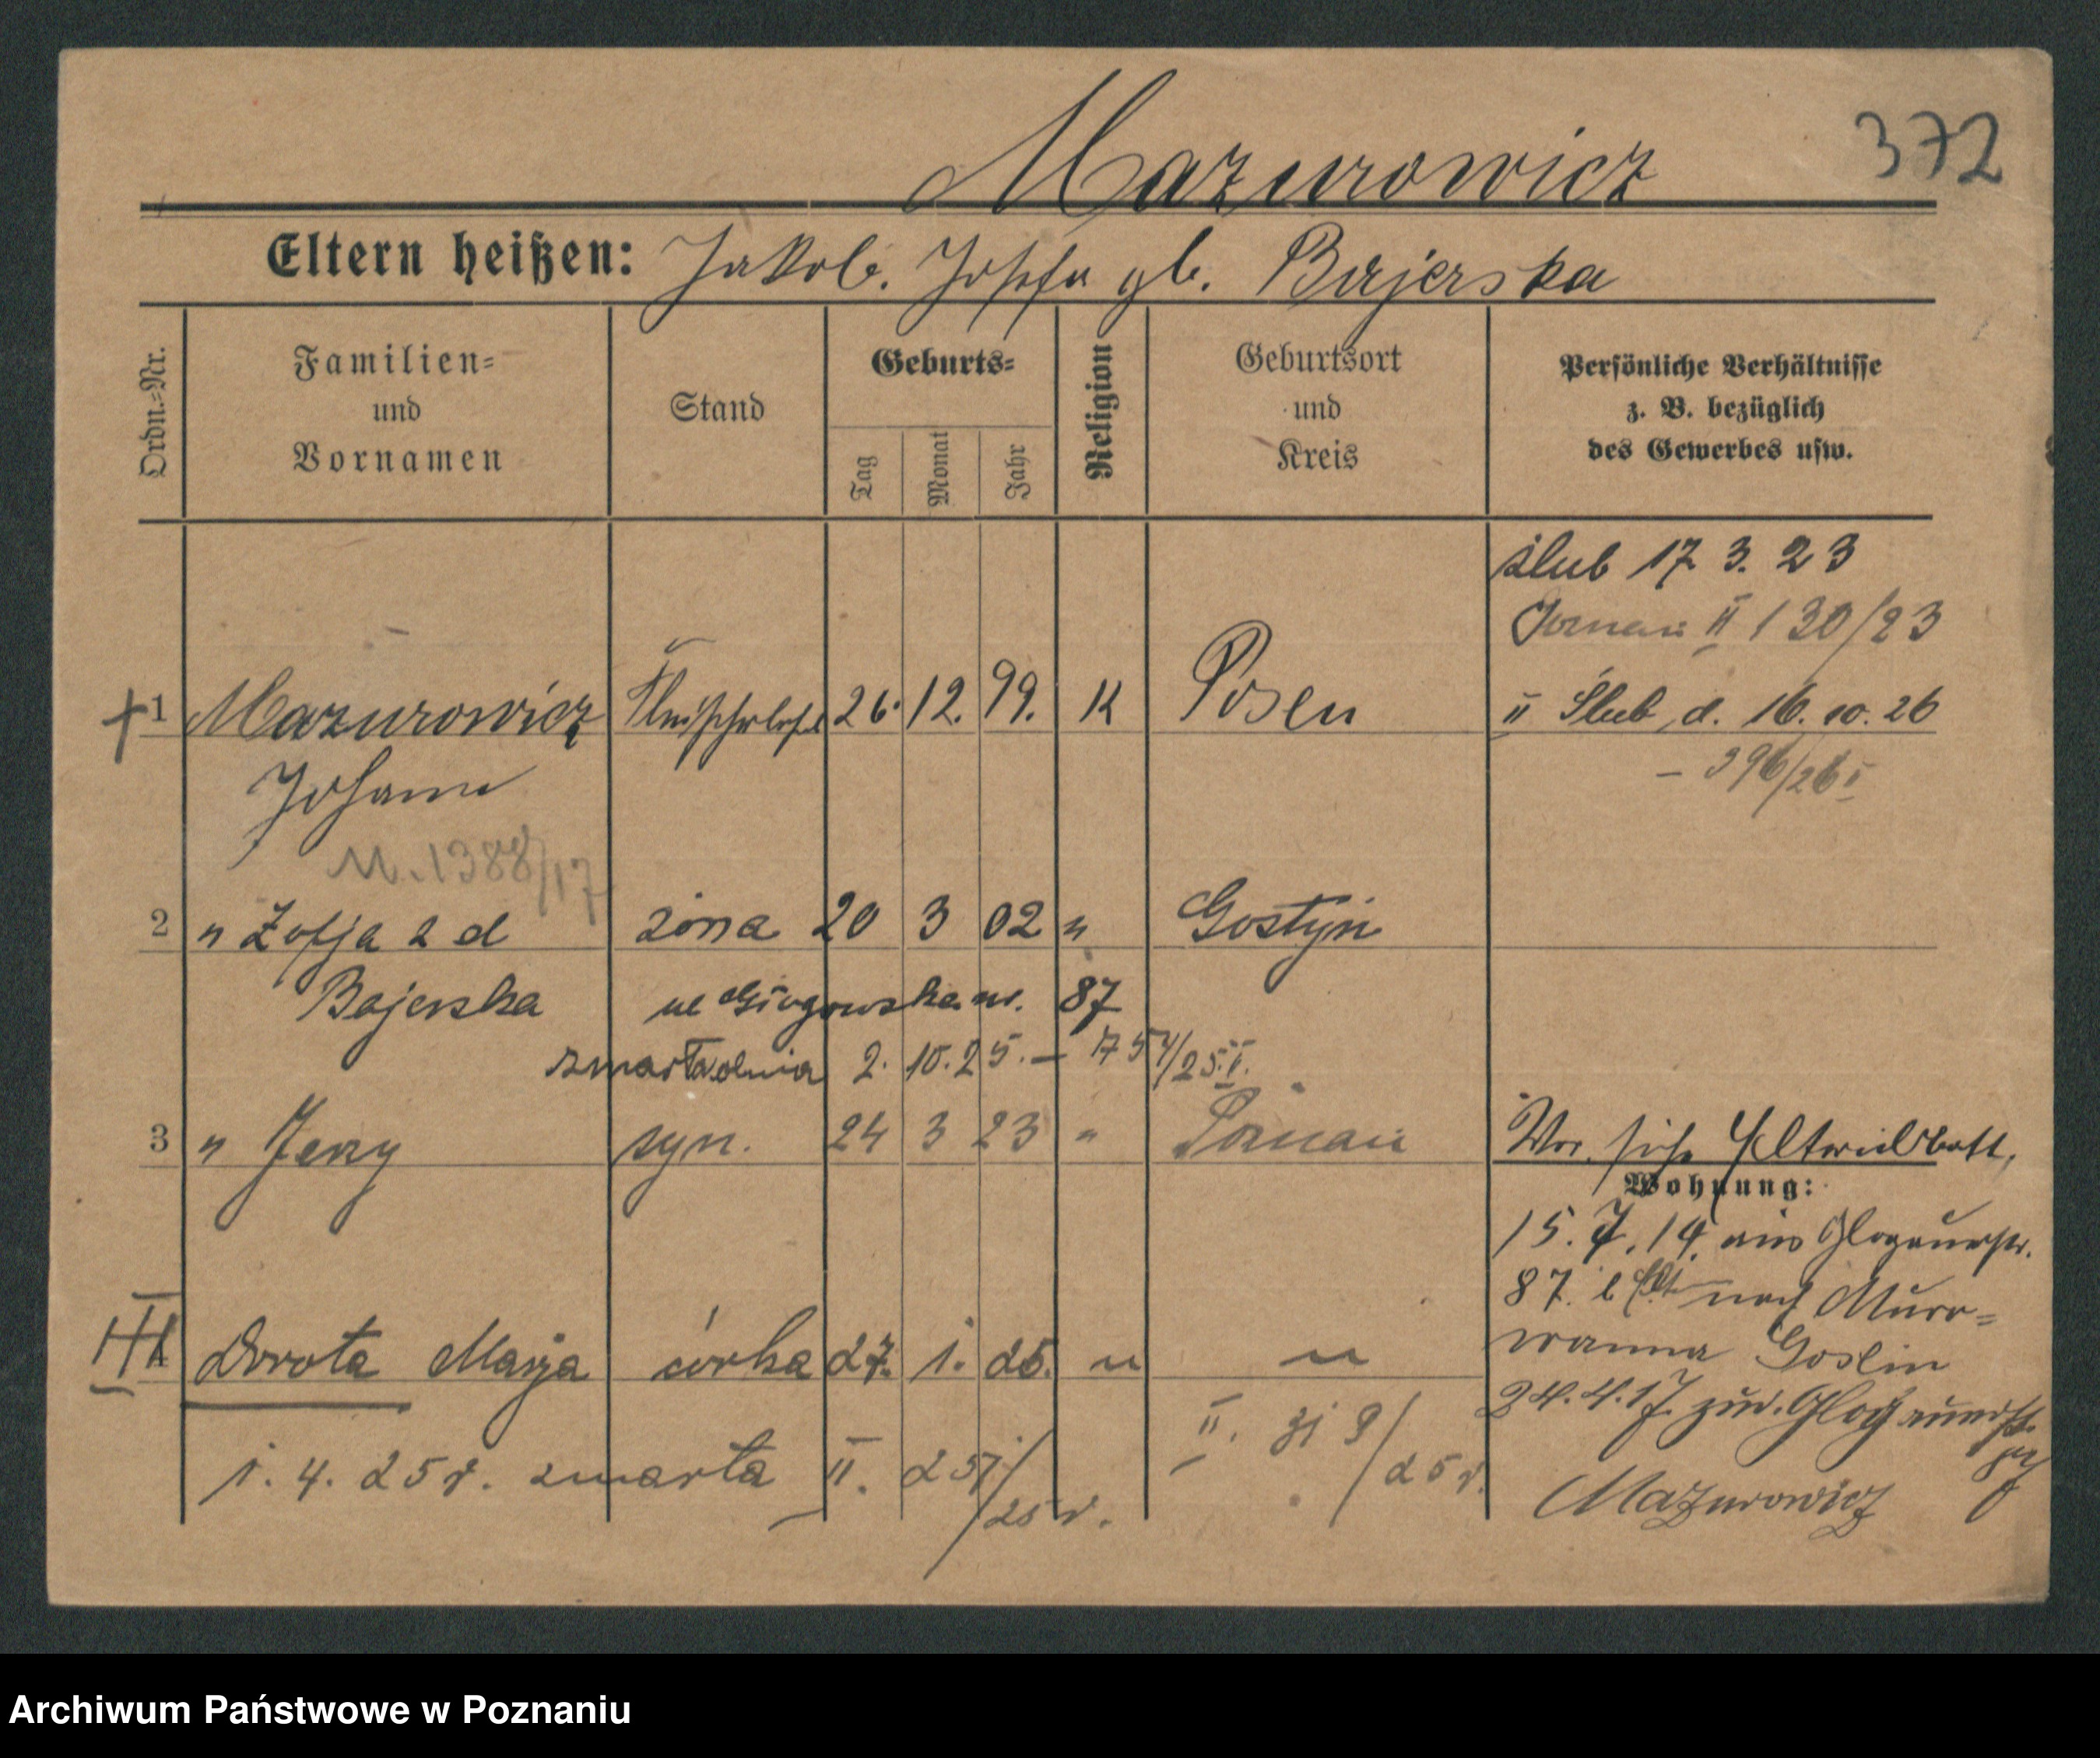 Mazurowicz
372
Eltern heißen: Jakob. Josefa gb. Bajerska
Ordn.-Nr.
Familien- und Vornamen
Stand
Geburts-
Tag
Monat
Jahr
Religion
Geburtsort und Kreis
Persönliche Verhältnisse z. B. bezüglich des Gewerbes usw.
ślub 17 3. 23
Poznań II 130/23
1 Mazurowicz 26. 12. 99. K Posen II Ślub d. 16. 10. 26
Johann
— 396/26 I
M. 1388/17
2 " Zofja z d żona 20 3 02 " Gostyń
Bajerska ul Głogowska nr. 87
zmarła dnia 2. 10. 25. — 754/25. I.
3 " Jerzy syn. 24 3 23 " Poznań
Vor. siehe
Wohnung:
15. 7. 14. aus Glogauerstr.
87. nach Muro-
wanna Goslin
III Dorota Marja córka 27. 1. 25. " "
24. 4. 17. zur. Glogauerstr.
1. 4. 25 r. zmarła II. 257/25 r.
II. 319/25 r.
Mazurowicz
Archiwum Państwowe w Poznaniu